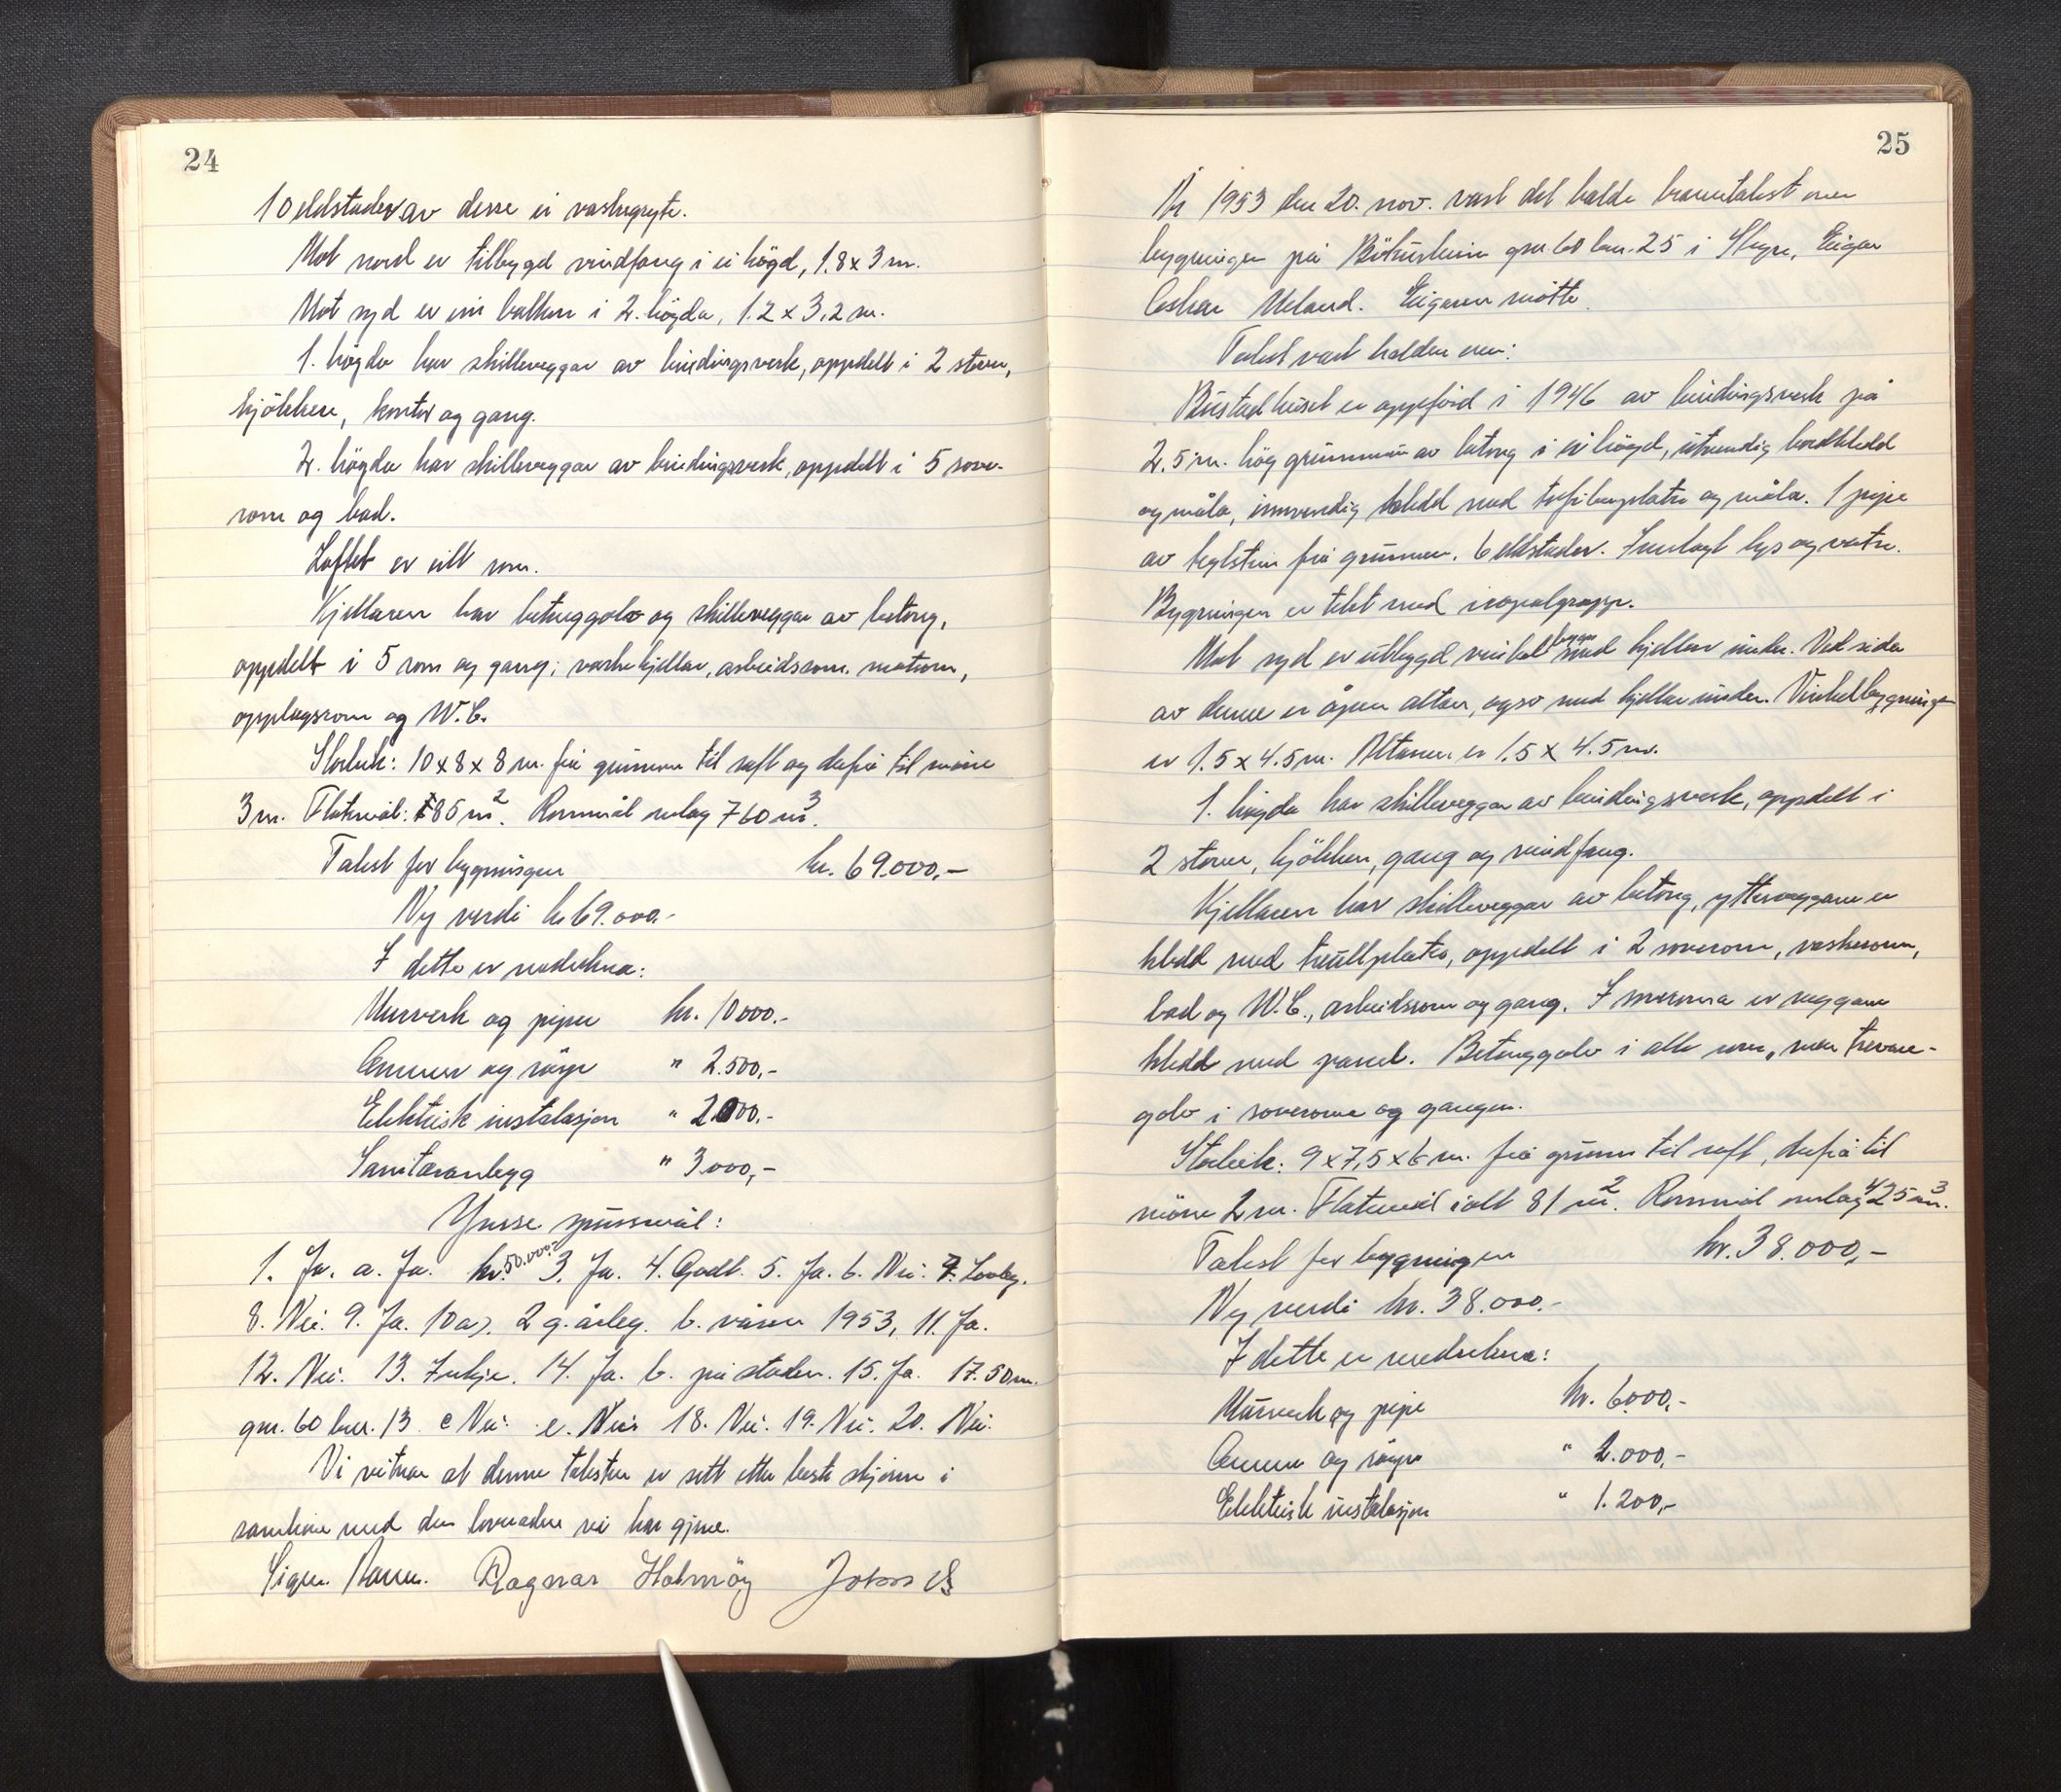 24
10 eldstader av desse ei vaskegryte.
Mot nord er tilbygd vindfang i ei högd, 1.8 x 3 m.
Mot syd er ein balkon i 2. högda, 1.2 x 3,2 m.
1. högda har skilleveggar av bindingsverk, oppdelt i 2 stover,
kjökken, kontor og gang.
2. högda har skilleveggar av bindingsverk, oppdelt i 5 sove-
rom og bad.
Loftet er eitt rom.
Kjellaren har betonggolv og skilleveggar av betong,
oppdelt i 5 rom og gang; vaskekjellar, arbeidsrom, matrom,
opplagsrom og W.C.
Storleik: 10 x 8 x 8 m. frå grunnen til raft og derfrå til möne
3 m. Flatemål: 85 m². Rommål omlag 760 m³.
Takst for bygningen kr. 69.000,-
Ny verdi kr 69.000.-
I dette er medrekna:
Murverk og pipe kr. 10000.-
Omner og röyr " 2.500,-
Elektrisk instalasjon " 2000.-
Sanitæranlegg " 3000,-
Ymse spursmål:
1. Ja. a. Ja. kr. 50.000.- 3. Ja. 4. Godt. 5. Ja. 6. Nei. 7. Lovleg.
8. Nei. 9. Ja. 10 a). 2 g. årleg. b. våren 1953, 11. Ja.
12. Nei. 13. Inkje. 14. Ja. b. på staden. 15. Ja. 17. 50 m.
gnr. 60 bnr. 13. c Nei. e. Nei. 18. Nei. 19. Nei. 20. Nei.
Vi vitnar at denne taksten er sett etter beste skjönn i
samhöve med den lovnaden vi har gjeve.
Ragnar Holmöy
25
År 1953 den 20. nov. vart det halde branntakst over
bygningen på gnr. 60 bnr. 25 i Skyre, Eigar
Oskar Meland. Eigaren mötte.
Takst vart halden over:
Bustadhuset er oppförd i 1946 av bindingsverk på
2.5 m. hög grunnmur av betong i ei högd, utvendig bordkledd
og måla, innvendig kledd med trefiberplater og måla. 1 pipe
av teglstein frå grunnen. 6 eldstader. Innlagt lys og vatn.
Bygningen er tekt med isopalpapp.
Mot syd er utbygd vinkelbygg med kjellar under. Ved sida
av denne er åpen altan, også med kjellar under. Vinkelbygningen
er 1.5 x 4.5 m. Altanen er 1.5 x 4.5 m.
1. högda har skilleveggar av bindingsverk, oppdelt i
2 stover, kjökken, gang og vindfang.
Kjellaren har skilleveggar av betong, ytterveggane er
kledd med treullplater, oppdelt i 2 soverom, vaskerom,
bad og W.C., arbeidsrom og gang. I soveroma er veggane
kledd med panel. Betonggolv i alle rom, men trevare-
golv i soveroma og gangen.
Storleik: 9 x 7,5 x 6 m. frå grunn til raft, derfrå til
möne 2 m. Flatemål ialt 81 m². Rommål omlag 425 m³.
Takst for bygningen kr. 38.000,-
Ny verdi kr. 38.000.-
I dette er medrekna:
Murverk og pipe kr. 6000,-
Omner og röyr " 2.000,-
Elektrisk instalasjon " 1.200,-